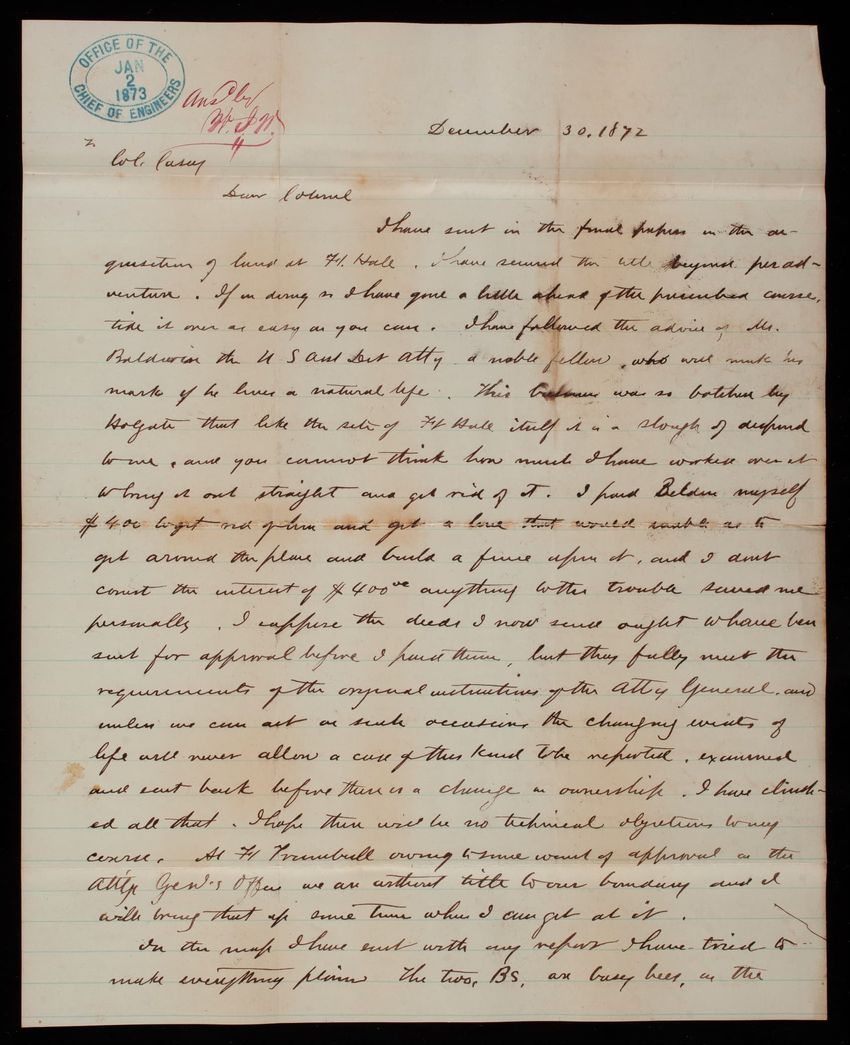 OFFICE OF THE
CHIEF OF ENGINEERS
JAN
2
1873
Ansd by
W.J.W.
December 30. 1872
Col. Casey
Dear Colonel
I have sent in the final papers in the ac-
quisition of land at Ft. Hale. I have secured the title beyond perad-
venture. If in doing so I have gone a little ahead of the prescribed course,
tide it over as easy as you can. I have followed the advice of Mr.
Baldwin the U S Asst Dist Atty a noble fellow, who will make his
mark if he lives a natural life. This business was so botched by
Holgate that like the site of Ft Hale itself it is a slough of despond
to me, and you cannot think how much I have worked over it
to bring it out straight and get rid of it. I paid Belden myself
$400 to get rid of him and get a line that would enable us to
get around the place and build a fence upon it, and I dont
count the interest of $400 00 anything to the trouble saved me
personally. I suppose the deeds I now send ought to have been
sent for approval before I paid them, but they fully meet the
requirements of the original instructions of the Atty General. and
unless we can act on such occasions the changing events of
life will never allow a case of this kind to be reported, examined
and sent back before there is a change in ownership. I have clinch-
ed all that. I hope there will be no technical objections to my
course. At Ft Trumbull owing to some want of approval in the
Atty Genl's Office we are without title to our boundary and I
will bring that up some time when I can get at it.
In the map I have sent with my report I have tried to
make everything plain The two, BS, or busy bees, as the